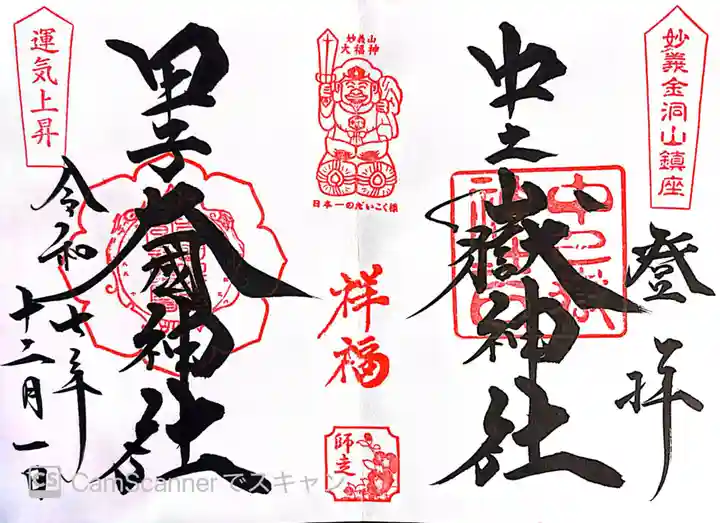 妙義金洞山鎮座
登拝
中之嶽神社
妙義山
大福神
日本一のだいこく様
祥福
師走
運気上昇
甲子大國神社
令和七年
十二月一日
CamScannerでスキャン